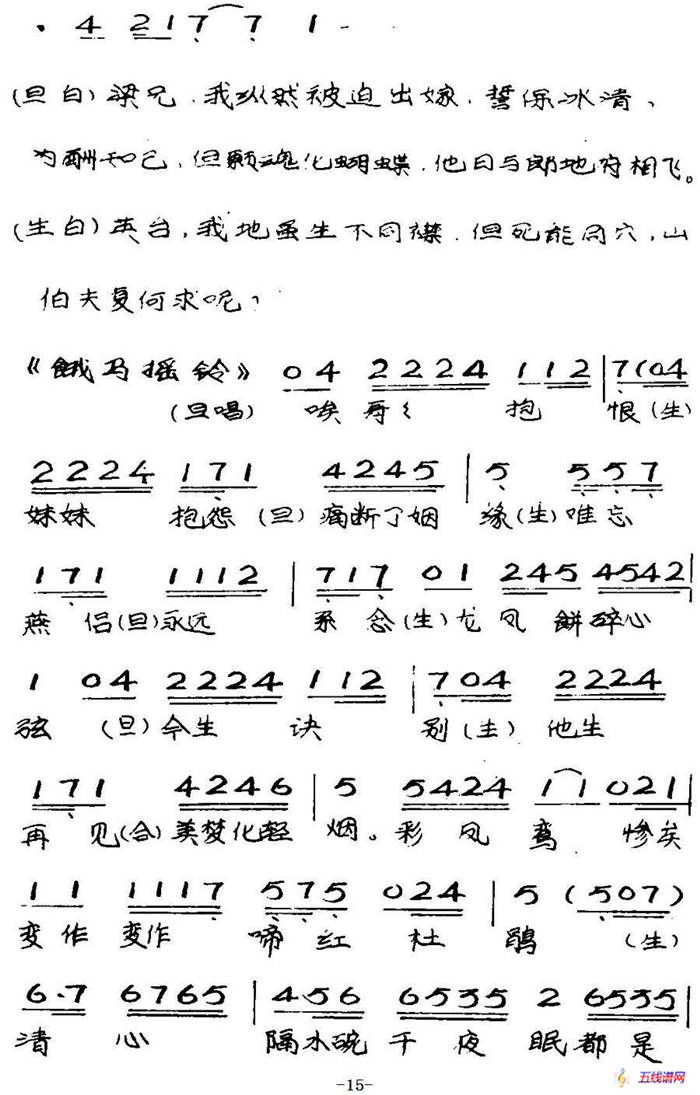 · 4 2 1 7 7 1 -
(旦白) 梁兄，我纵然被迫出嫁，誓保冰清，
为酬知己，但愿魂化蝴蝶，他日与郎地府相飞。
(生白) 英台，我地虽生不同襟，但死能同穴，山
伯夫复何求呢？
《饿马摇铃》 04 2224 112 | 7(04
(旦唱) 唉哥〻 抱 恨 (生)
2224 171 4245 | 5 557
妹妹 抱怨 (旦) 痛断了姻 缘 (生) 唯忘
171 1112 | 717 01 245 4542 |
燕侣 (旦) 永远 系念 (生) 龙凤 饼碎心
1 04 2224 112 | 704 2224
弦 (旦) 今生 诀 别 (生) 他生
171 4246 | 5 5424 11 021 |
再见 (合) 美梦化轻 烟。彩凤 鸾 惨矣
11 1117 575 024 | 5 (507)
变作 变作 啼红 杜 鹃 (生)
6·7 6765 | 4·56 6535 2 6535 |
清心 隔水碗 千夜 眠都是
-15-
五线谱网